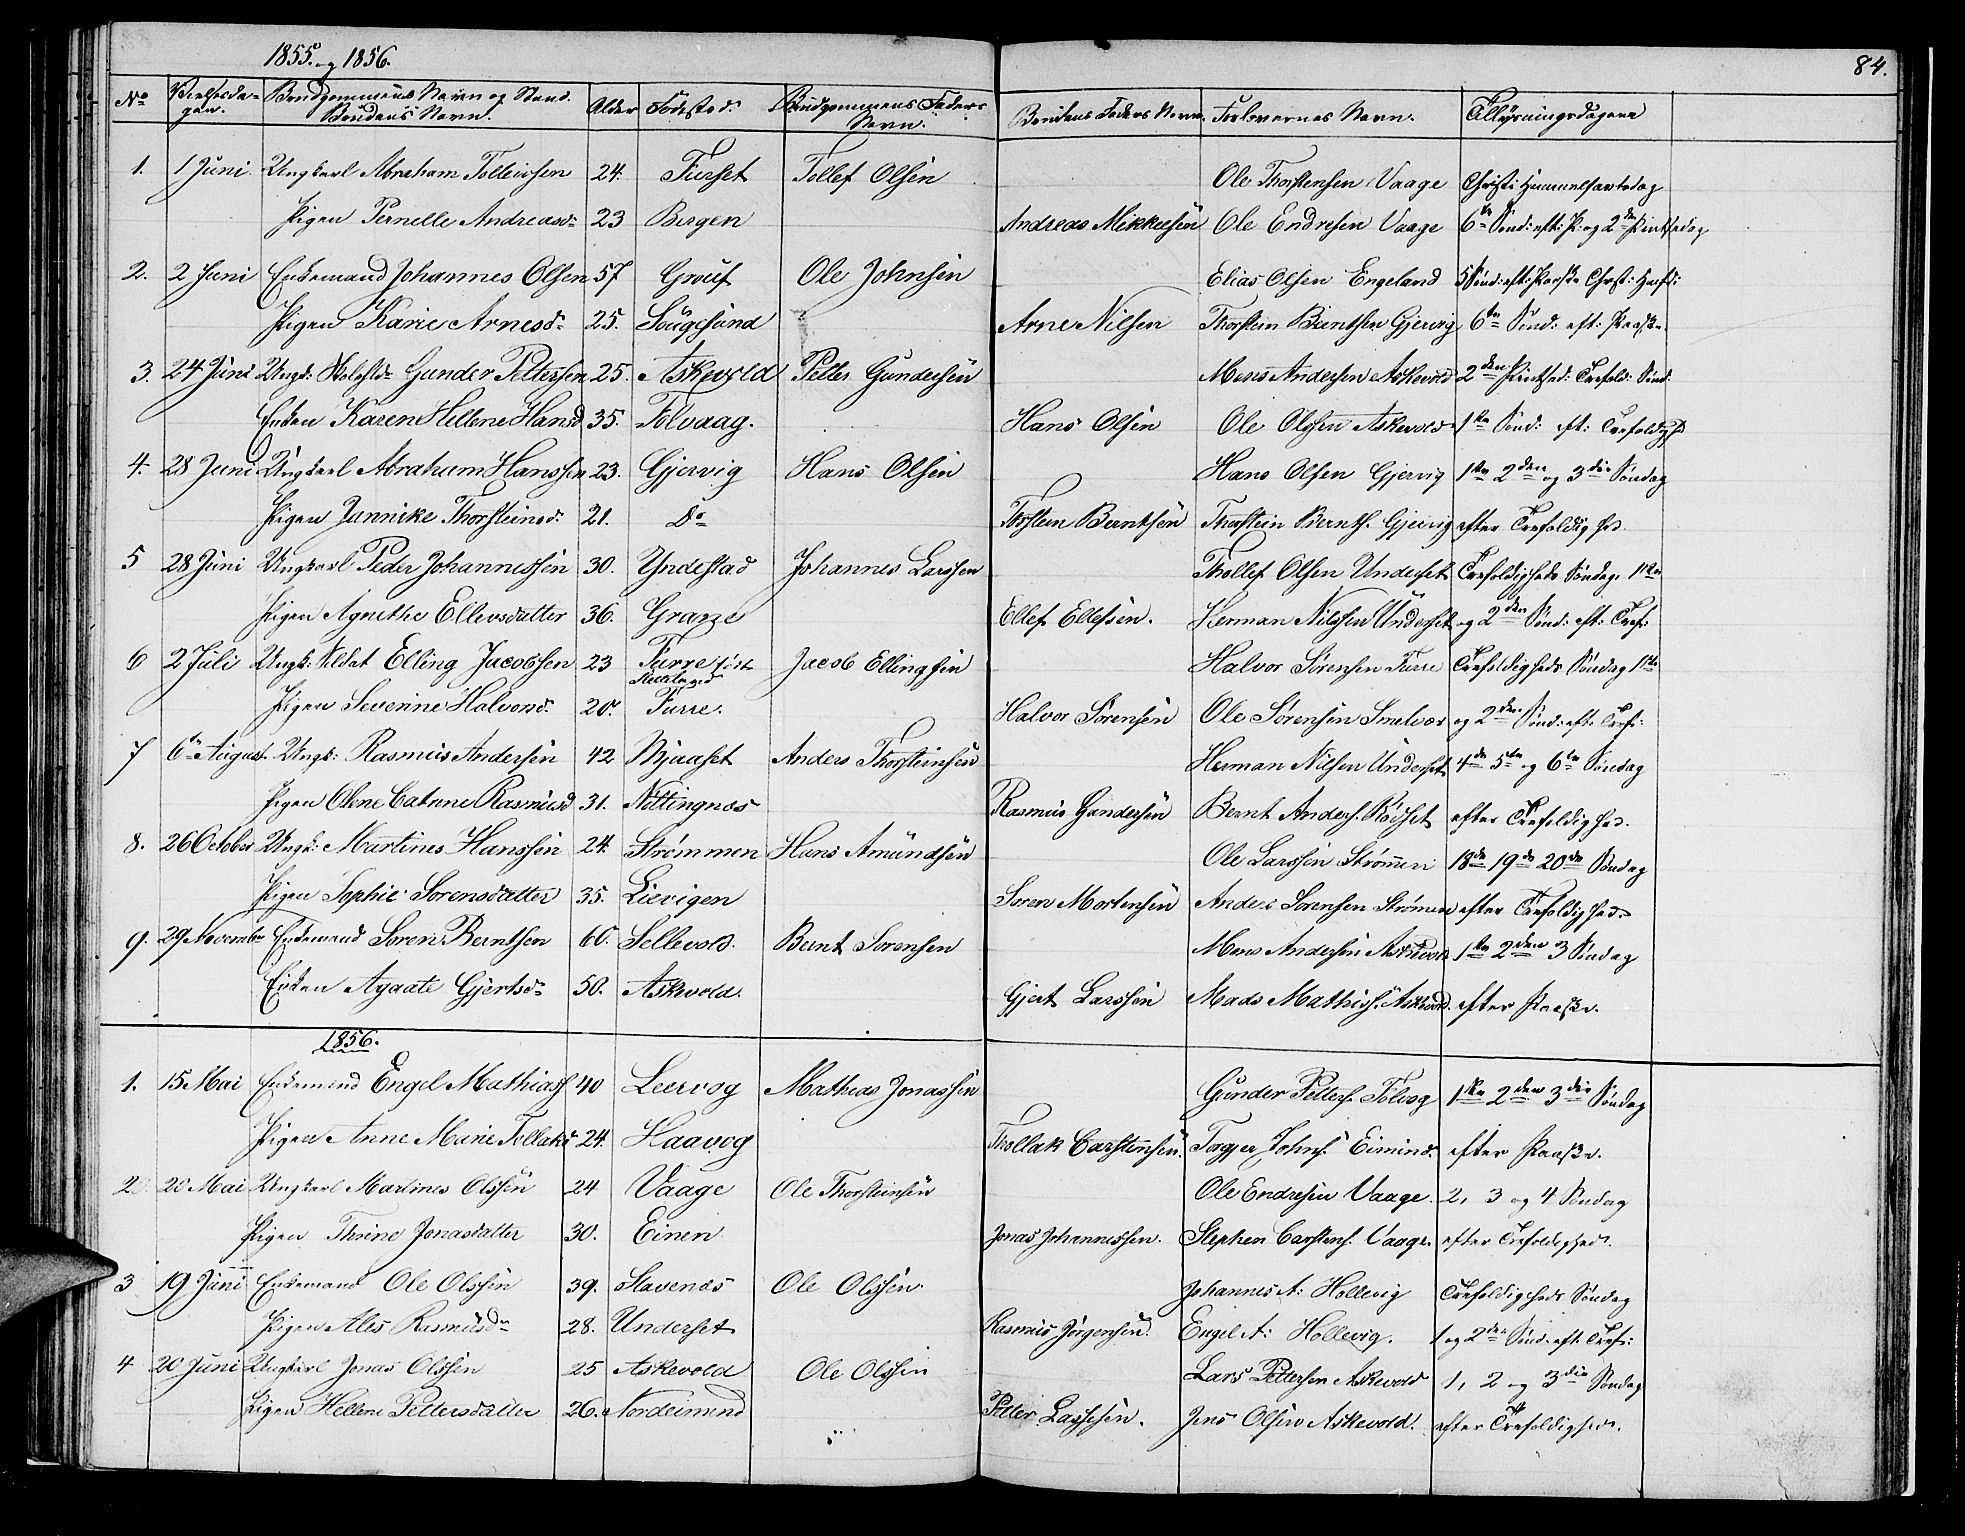 1855 og 1856.
84.
No Vielsesdagen. Brudgommens Navn og Stand. Brudens Navn. Alder Fødested. Brudgommens Faders Navn. Brudens Faders Navn. Forlovernes Navn. Tillysningsdagene
1. 1 Juni Ungkarl Abraham Tolleivsen 24. Furset Tollef Olsen Ole Thorstensen Vaage Christi Himmelfartsdag
Pigen Pernelle Andreasd: 23 Bergen Andreas Mikkelsen Ole Endresen Vaage 6te Sønd: eft: P: og 2den Pintsedag
2. 2 Juni Enkemand Johannes Olsen 57 Ole Johnsen Elias Olsen Engeland 5 Sønd: eft: Paaske Christ:
Pigen Karie Arnesd: 25. Sougesund Arne Nilsen Thorstein Berntsen Gjervig 6te Sønd: eft: Paaske
3. 24 Juni Ungk: Gunder Pettersen 25. Askevold Petter Gundersen Mons Andersen Askevold 2den Pintsed: Trefold: Sønd:
Enken Karen Hellene Hansd 35. Tolvaag. Hans Olsen Ole Olsen Askevold 1ste Sønd: eft: Trefoldigh
4. 28 Juni Ungkarl Abraham Hanssen 23. Gjervig Hans Olsen Hans Olsen Gjervig 1ste 2den og 3die Søndag
Pigen Jannike Thorsteinsd: 21. Do Thorstein Berntsen Thorstein Bernts. Gjervig efter Trefoldighed.
5 28 Juni Ungkarl Peder Johannessen 30. Yndestad Johannes Larssen Thollef Olsen Underset Trefoldigheds Søndag. 1ste
Pigen Agnethe Ellevsdatter 36. Grane Ellef Ellefsen. Herman Nilssen Underset og 2den Sønd: eft: Tref:
6 2 Juli Ungk: Soldat Elling Jacobsen 23 Furre Jacob Ellingsen Halvor Sørensen Furre Trefoldigheds Søndag 1ste
Pigen Severine Halvorsd. 20. Furre. Halvor Sørensen Ole Sørensen Smelvær og 2den Sønd: eft: Tref:
7 6te August. Ungk: Rasmus Andersen 42 Mjaaset Anders Thorsteinsen Herman Nilsen Underset 4de 5te og 6te Søndag
Pigen Olene Catrine Rasmusd 31. Nøttingnæs Rasmus Gundersen Bernt Anders. Rødset efter Trefoldighed.
8. 26 October Ungk: Martines Hanssen 24. Strømmen Hans Amundsen Ole Larssen Strømen 18de 19de 20de Søndag
Pigen Sophie Sørensdatter 35. Lievigen Søren Mortensen Anders Sørensen Strømen efter Trefoldighed.
9. 29 Novembr Enkemand Søren Berntsen 60. Sellevold. Bernt Sørensen Mons Andersen Askevold 1ste 2den 3 Søndag
Enken Agaate Gjertsd: 50. Askevold. Gjert Larssen Mads Mathiss. Askevold. efter Paaske.
1856.
1. 15 Mai Enkemand Engel Mathiass 40 Leervog Mathias Jonassen Gunder Petters. Tolvog 1ste 2den 3die Søndag
Pigen Anne Marie Tollaksd 24. Haavog Thollak Carstensen. Torger Johns. Eimind. efter Paaske.
2. 20 Mai Ungkarl Martines Olssen 24 Vaage Ole Thorsteinsen Ole Endresen Vaage. 2, 3 og 4 Søndag
Pigen Thrine Jonasdatter 30. Einen Jonas Johannessen. Stephen Carstens. Vaage. efter Trefoldighed.
3 19 Juni Enkemand Ole Olssen 39. Stavenæs Ole Olssen. Johannes A: Hollevig Trefoldigheds Søndag
Pigen Ales Rasmusd: 28. Underset Rasmus Jørgensen. Engel A: Hollevig. 1 og 2den Sønd: eft: Tref:
4 20 Juni Ungkarl Jonas Olssen 25 Askevold Ole Olssen Lars Pettersen Askevold 1, 2 og 3die Søndag
Pigen Hellene Pettersdatter 26. Nordeimind Petter Lassesen. Jens Olsen Askevold. efter Trefoldighed.